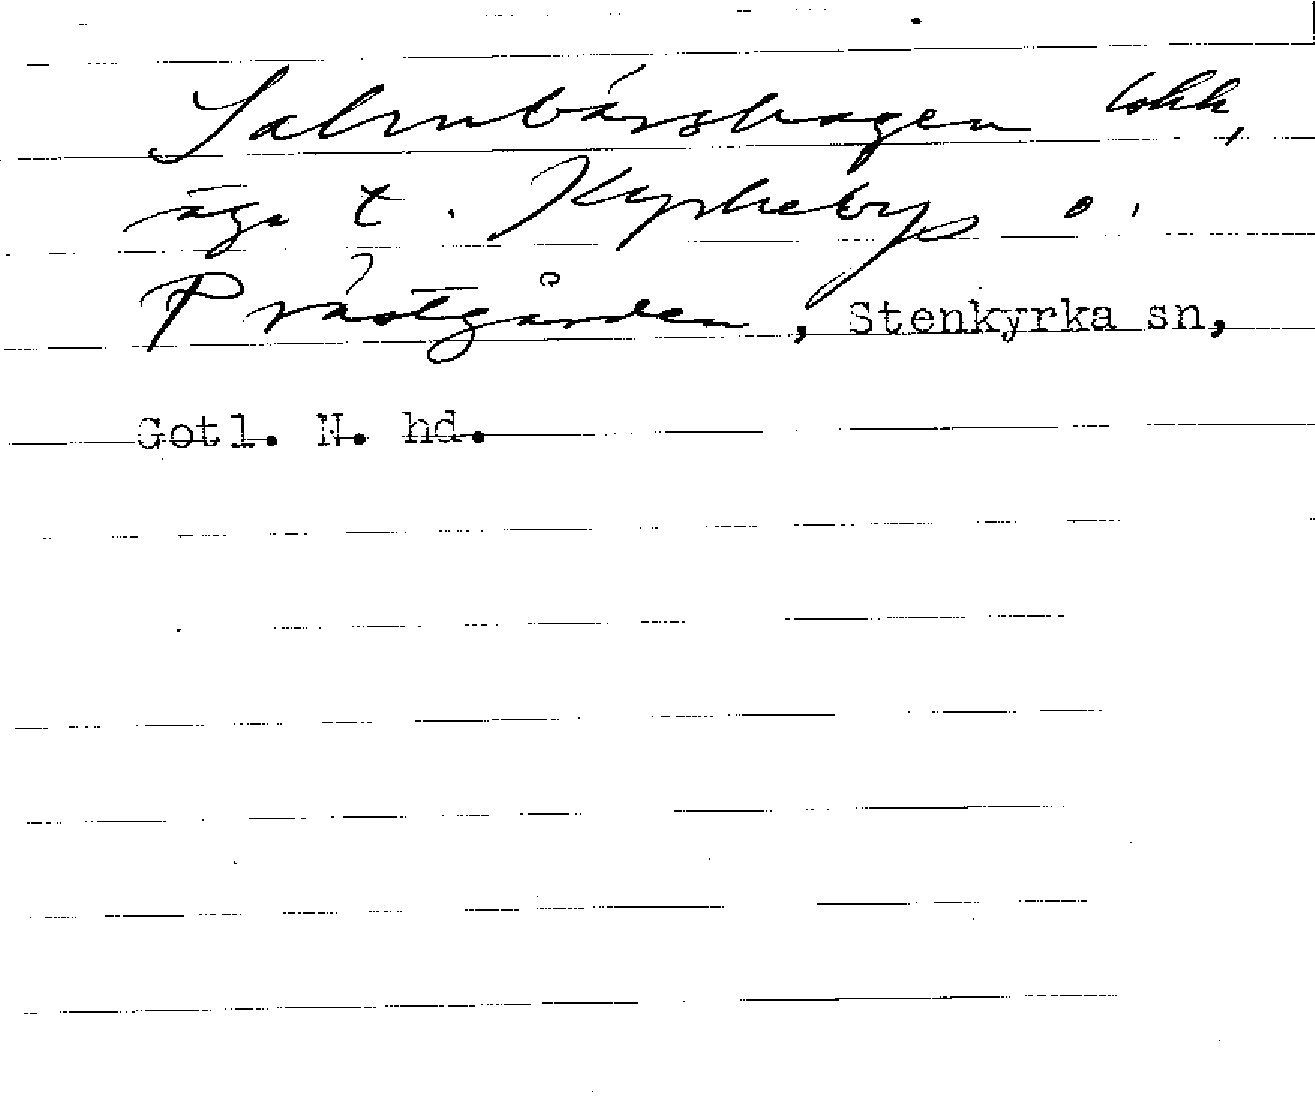 Salmbärshagen bhh,
äga t. Kyrkebys o.
Prästgården, Stenkyrka sn,
Gotl. N. hd.